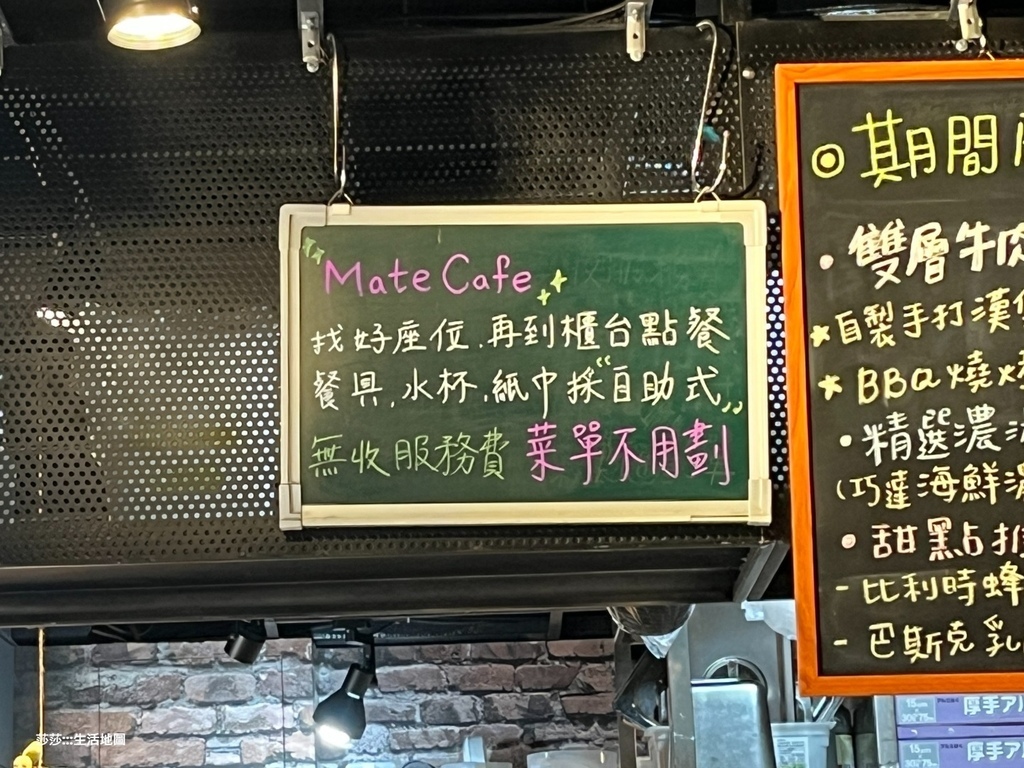 Mate Cafe
找好座位.再到櫃台點餐
餐具.水杯.紙巾採"自助式"
無收服務費 菜單不用劃
◎ 期間
• 雙層牛肉
★自製手打漢
★ BBQ燒烤
• 精選濃
(巧達海鮮濃
• 甜點
- 比利時蜂
- 巴斯克乳
15μm
300*75m
厚手ア
15μm
300*75m
厚手ア
莎莎:::生活地圖